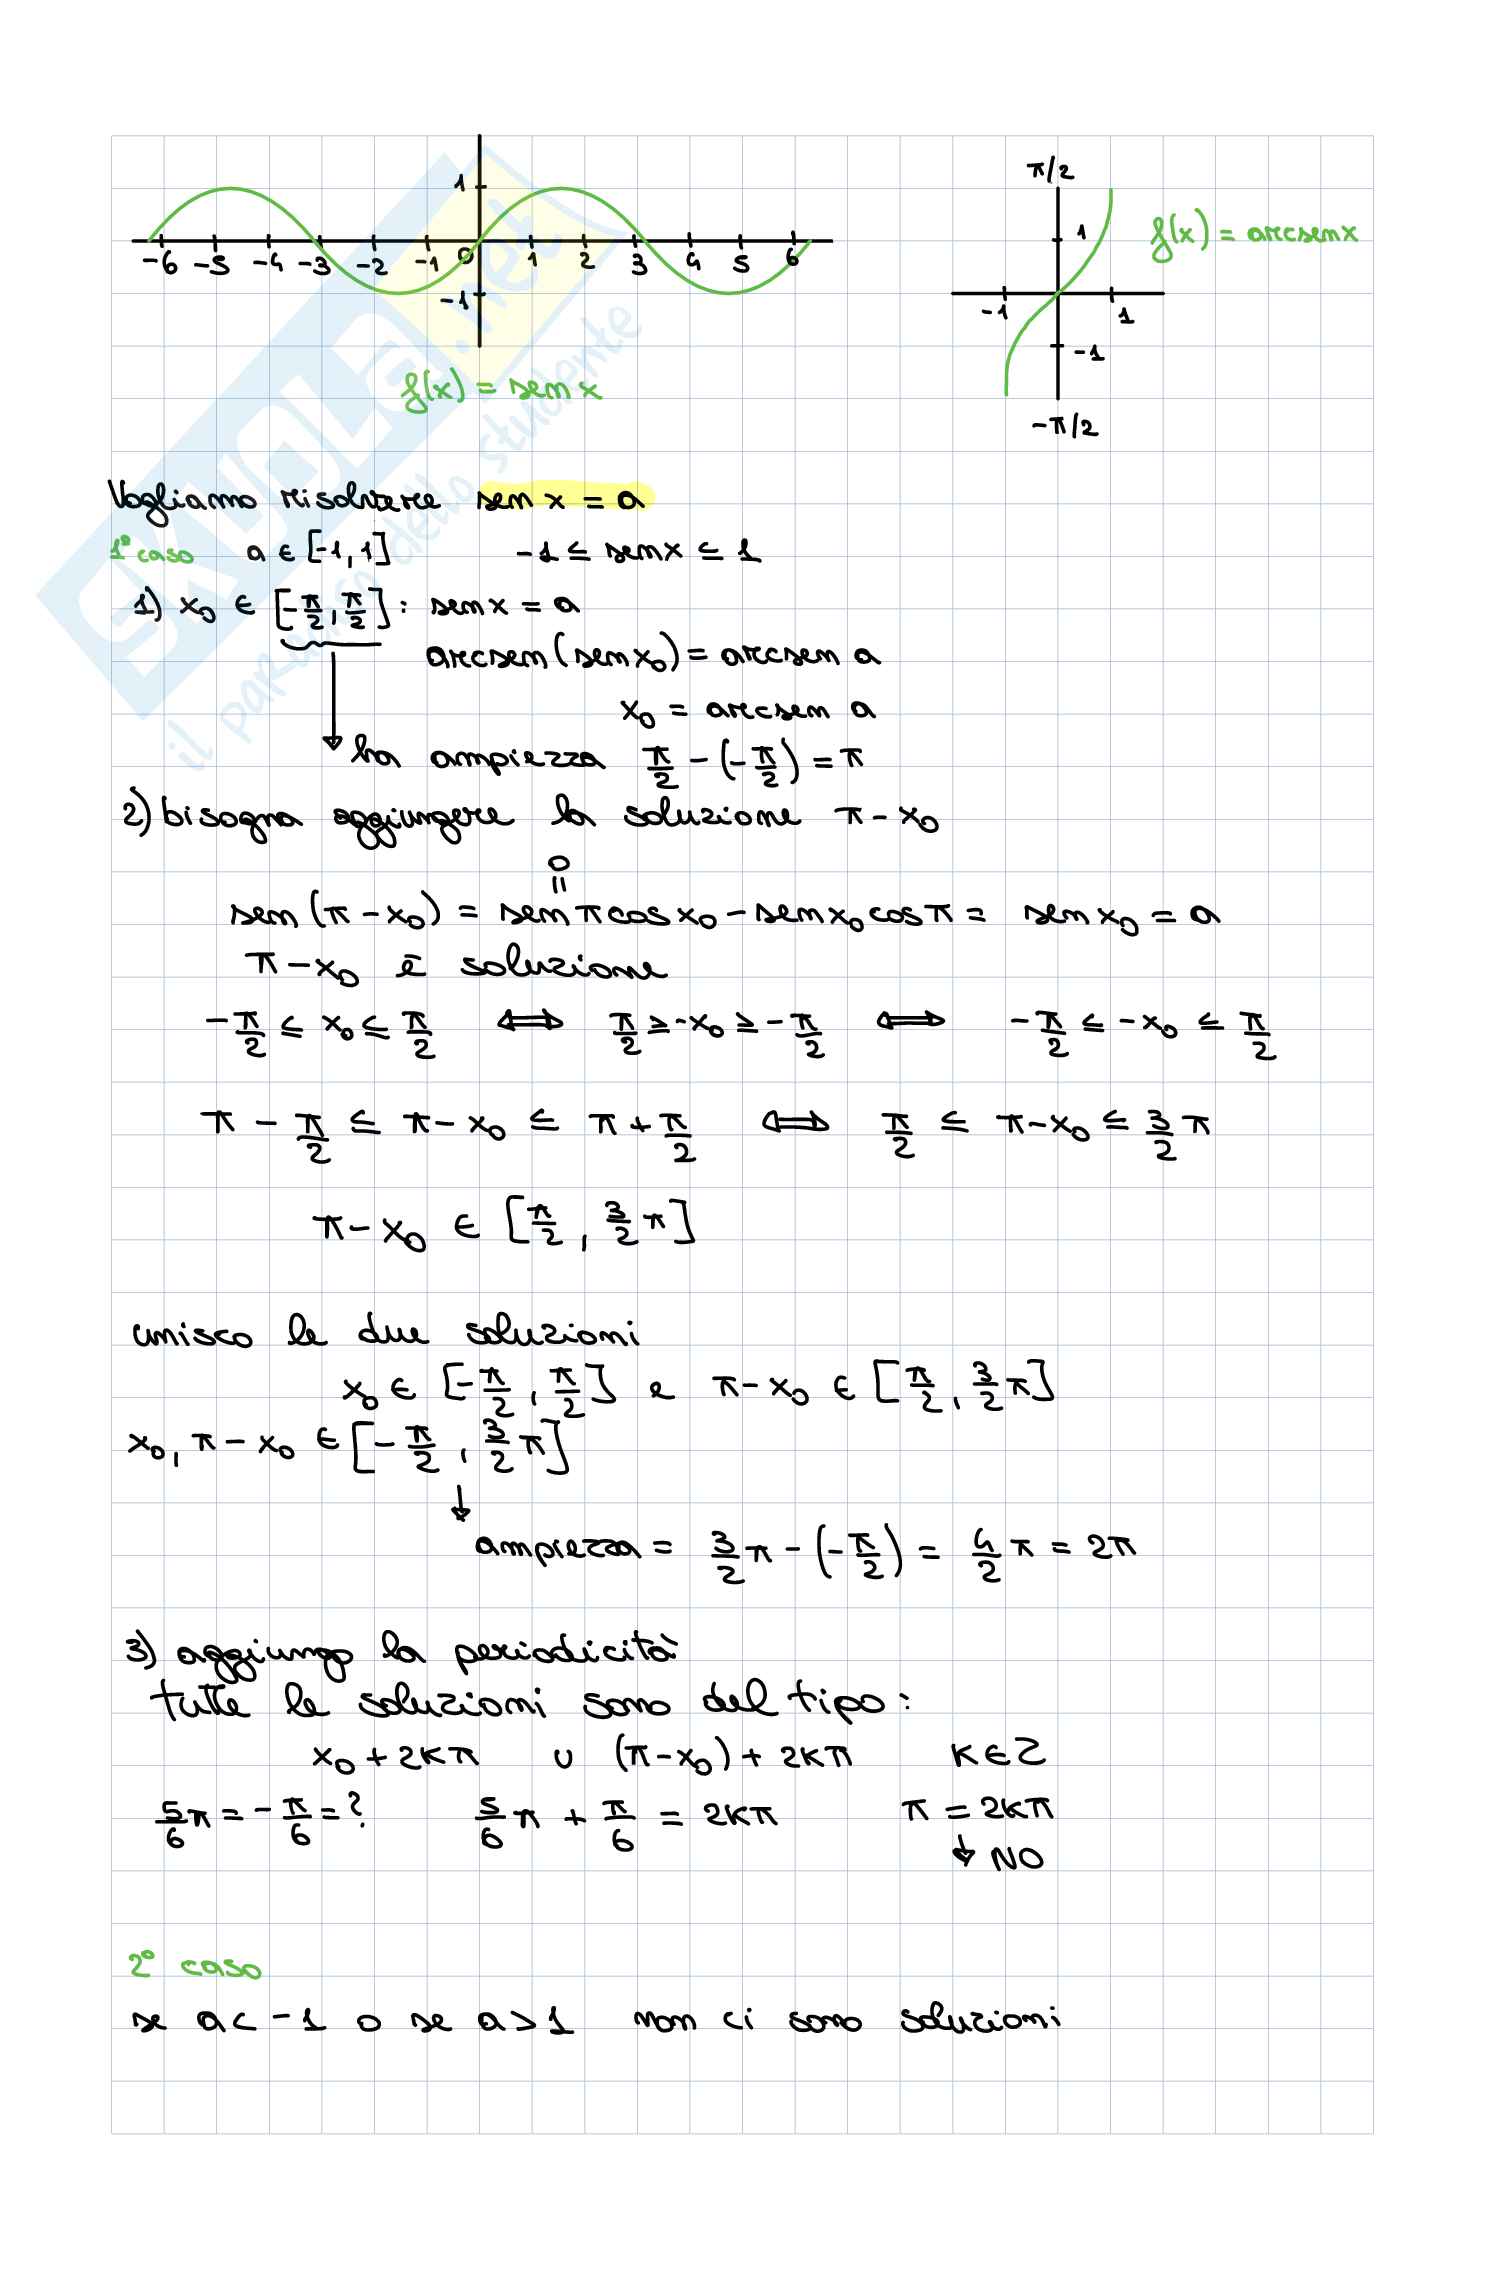 1
-6 -5 -4 -3 -2 -1 0 1 2 3 4 5 6
-1
f(x) = sen x
π/2
1
f(x) = arcsen x
-1 1
-1
-π/2
SKUOLA.net
il paradiso dello studente
Vogliamo risolvere sen x = a
1° caso a ∈ [-1, 1] -1 ≤ sen x ≤ 1
1) x₀ ∈ [-π/2, π/2] : sen x = a
arcsen (sen x₀) = arcsen a
x₀ = arcsen a
ha ampiezza π/2 - (-π/2) = π
2) bisogna aggiungere la soluzione π - x₀
0
=
sen (π - x₀) = sen π cos x₀ - sen x₀ cos π = sen x₀ = a
π - x₀ è soluzione
-π/2 ≤ x₀ ≤ π/2 ⟺ π/2 ≥ -x₀ ≥ -π/2 ⟺ -π/2 ≤ -x₀ ≤ π/2
π - π/2 ≤ π - x₀ ≤ π + π/2 ⟺ π/2 ≤ π - x₀ ≤ 3/2 π
π - x₀ ∈ [π/2, 3/2 π]
unisco le due soluzioni
x₀ ∈ [-π/2, π/2] e π - x₀ ∈ [π/2, 3/2 π]
x₀, π - x₀ ∈ [-π/2, 3/2 π]
↓
ampiezza = 3/2 π - (-π/2) = 4/2 π = 2π
3) aggiungo la periodicità
tutte le soluzioni sono del tipo:
x₀ + 2kπ ∪ (π - x₀) + 2kπ k ∈ Z
5/6 π = -π/6 = ? 5/6 π + π/6 = 2kπ π = 2kπ
↓ NO
2° caso
se a < -1 o se a > 1 non ci sono soluzioni